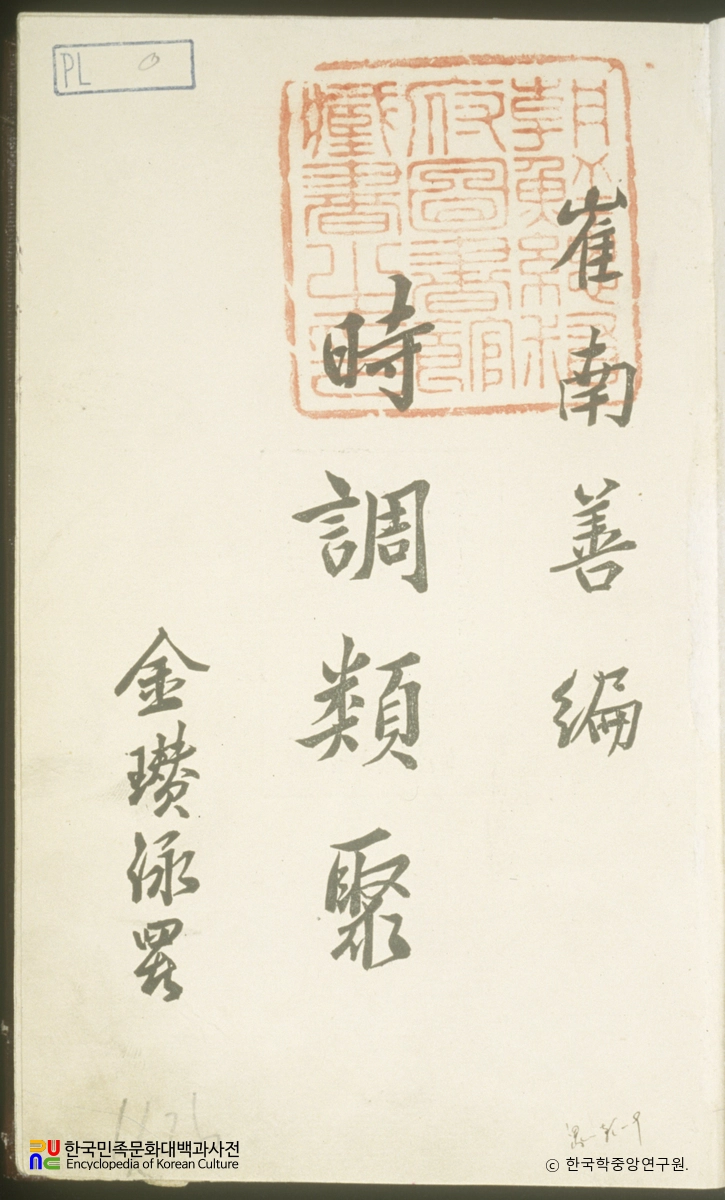 PL
朝鮮總督
府圖書館
藏書之印
崔南善編
時調類聚
金瓚泳署
한국민족문화대백과사전
Encyclopedia of Korean Culture
ⓒ 한국학중앙연구원.